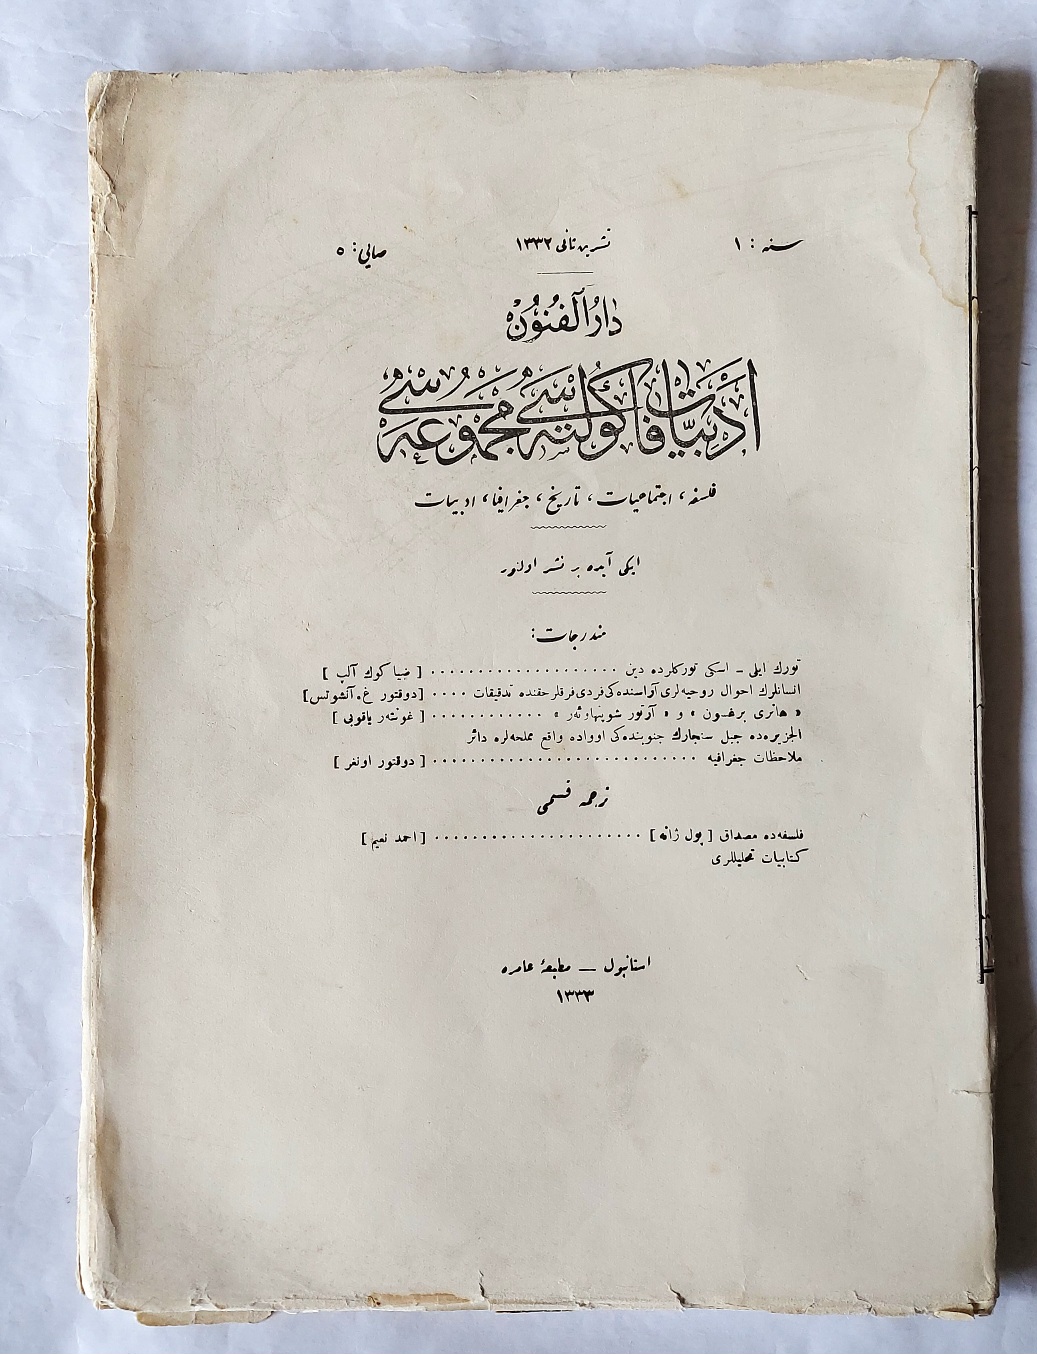 سنه : ١ تشرین ثانی ١٣٣٢ صایی : ٥
دَارُ ٱلْفُنُونْ
ادبیات فاكولته سی مجموعه سی
فلسفه ، اجتماعیات ، تاریخ ، جغرافیا ، ادبیات
ایكی آیده بر نشر اولنور
مندرجات :
تورك ایلی - اسكی توركلرده دین .................... [ ضیا كوك آلپ ]
انسانلرك احوال روحیه لری آراسنده كی فردی فرقلر حقنده تدقیقات .... [ دوقتور غ . آنشوتس ]
« هانری برغسون » و « آرتور شوپنهاوئهر » ............ [ غونتهر یاقوبی ]
الجزیره ده جبل سنجارك جنوبنده كی اوواده واقع مملحه لره دائر
ملاحظات جغرافیه ............................ [ دوقتور اونغر ]
ترجمه قسمی
فلسفه ده مصداق [ پول ژانه ] ...................... [ احمد نعیم ]
كتابیات تحلیللری
استانبول — مطبعهٔ عامره
١٣٣٣